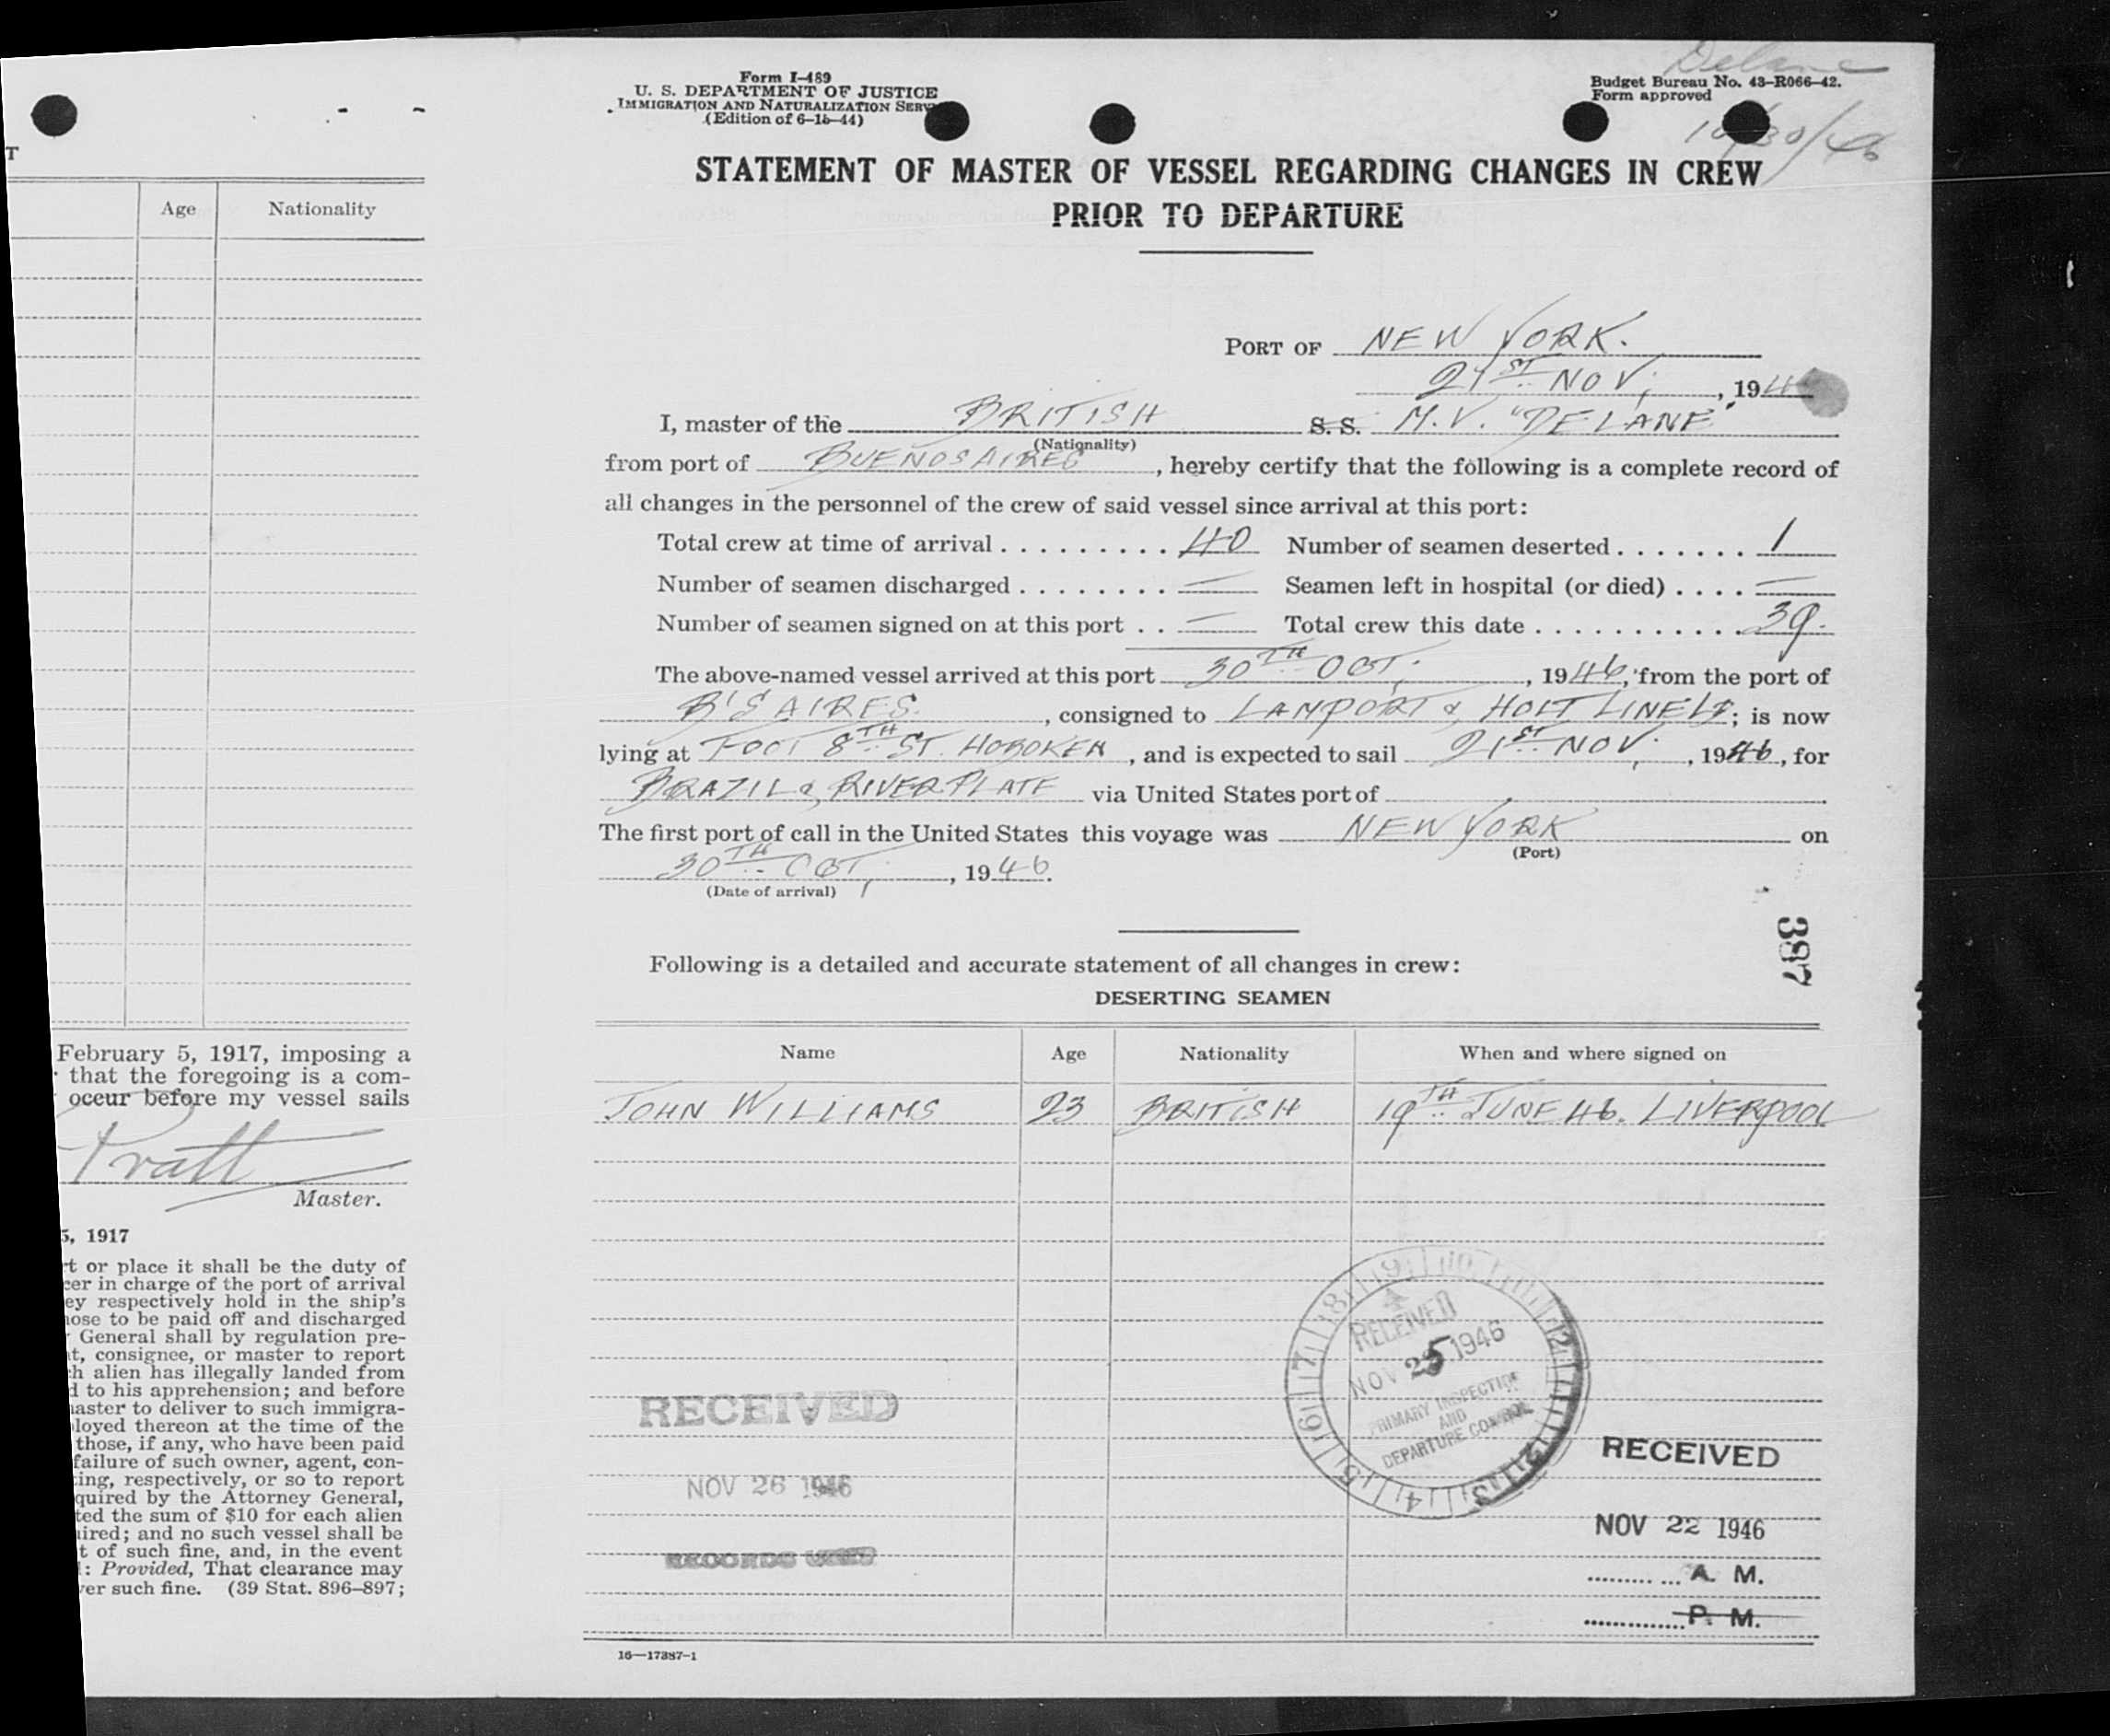 T
Age Nationality
February 5, 1917, imposing a
that the foregoing is a com-
occur before my vessel sails
Pratt
Master.
5, 1917
t or place it shall be the duty of
cer in charge of the port of arrival
ey respectively hold in the ship's
ose to be paid off and discharged
General shall by regulation pre-
t, consignee, or master to report
h alien has illegally landed from
d to his apprehension; and before
aster to deliver to such immigra-
loyed thereon at the time of the
those, if any, who have been paid
failure of such owner, agent, con-
ing, respectively, or so to report
quired by the Attorney General,
ted the sum of $10 for each alien
ired; and no such vessel shall be
t of such fine, and, in the event
: Provided, That clearance may
er such fine. (39 Stat. 896-897;
Form I-489
U. S. DEPARTMENT OF JUSTICE
IMMIGRATION AND NATURALIZATION SERV
(Edition of 6-15-44)
Delane
Budget Bureau No. 43-R066-42.
Form approved
10/30/46
STATEMENT OF MASTER OF VESSEL REGARDING CHANGES IN CREW
PRIOR TO DEPARTURE
PORT OF NEW YORK.
21ST NOV, , 194
I, master of the BRITISH S. S. M.V. "DELANE"
(Nationality)
from port of BUENOS AIRES , hereby certify that the following is a complete record of
all changes in the personnel of the crew of said vessel since arrival at this port:
Total crew at time of arrival . . . . . . . . . 40 Number of seamen deserted . . . . . . . 1
Number of seamen discharged . . . . . . . . — Seamen left in hospital (or died) . . . . —
Number of seamen signed on at this port . . — Total crew this date . . . . . . . . . . . 39.
The above-named vessel arrived at this port 30TH OCT, , 1946, from the port of
B'S AIRES , consigned to LAMPORT & HOLT LINE LD; is now
lying at FOOT 8TH ST. HOBOKEN , and is expected to sail 21ST NOV, , 1946, for
BRAZIL & RIVER PLATE via United States port of
The first port of call in the United States this voyage was NEW YORK on
(Port)
30TH OCT, , 1946.
(Date of arrival)
387
Following is a detailed and accurate statement of all changes in crew:
DESERTING SEAMEN
Name Age Nationality When and where signed on
JOHN WILLIAMS 23 BRITISH 19TH JUNE 46. LIVERPOOL
RECEIVED
NOV 25 1946
PRIMARY INSPECTION
AND
DEPARTURE CONTROL
RECEIVED
NOV 26 1946
RECORDS UNIT
RECEIVED
NOV 22 1946
A. M.
P. M.
16—17387-1